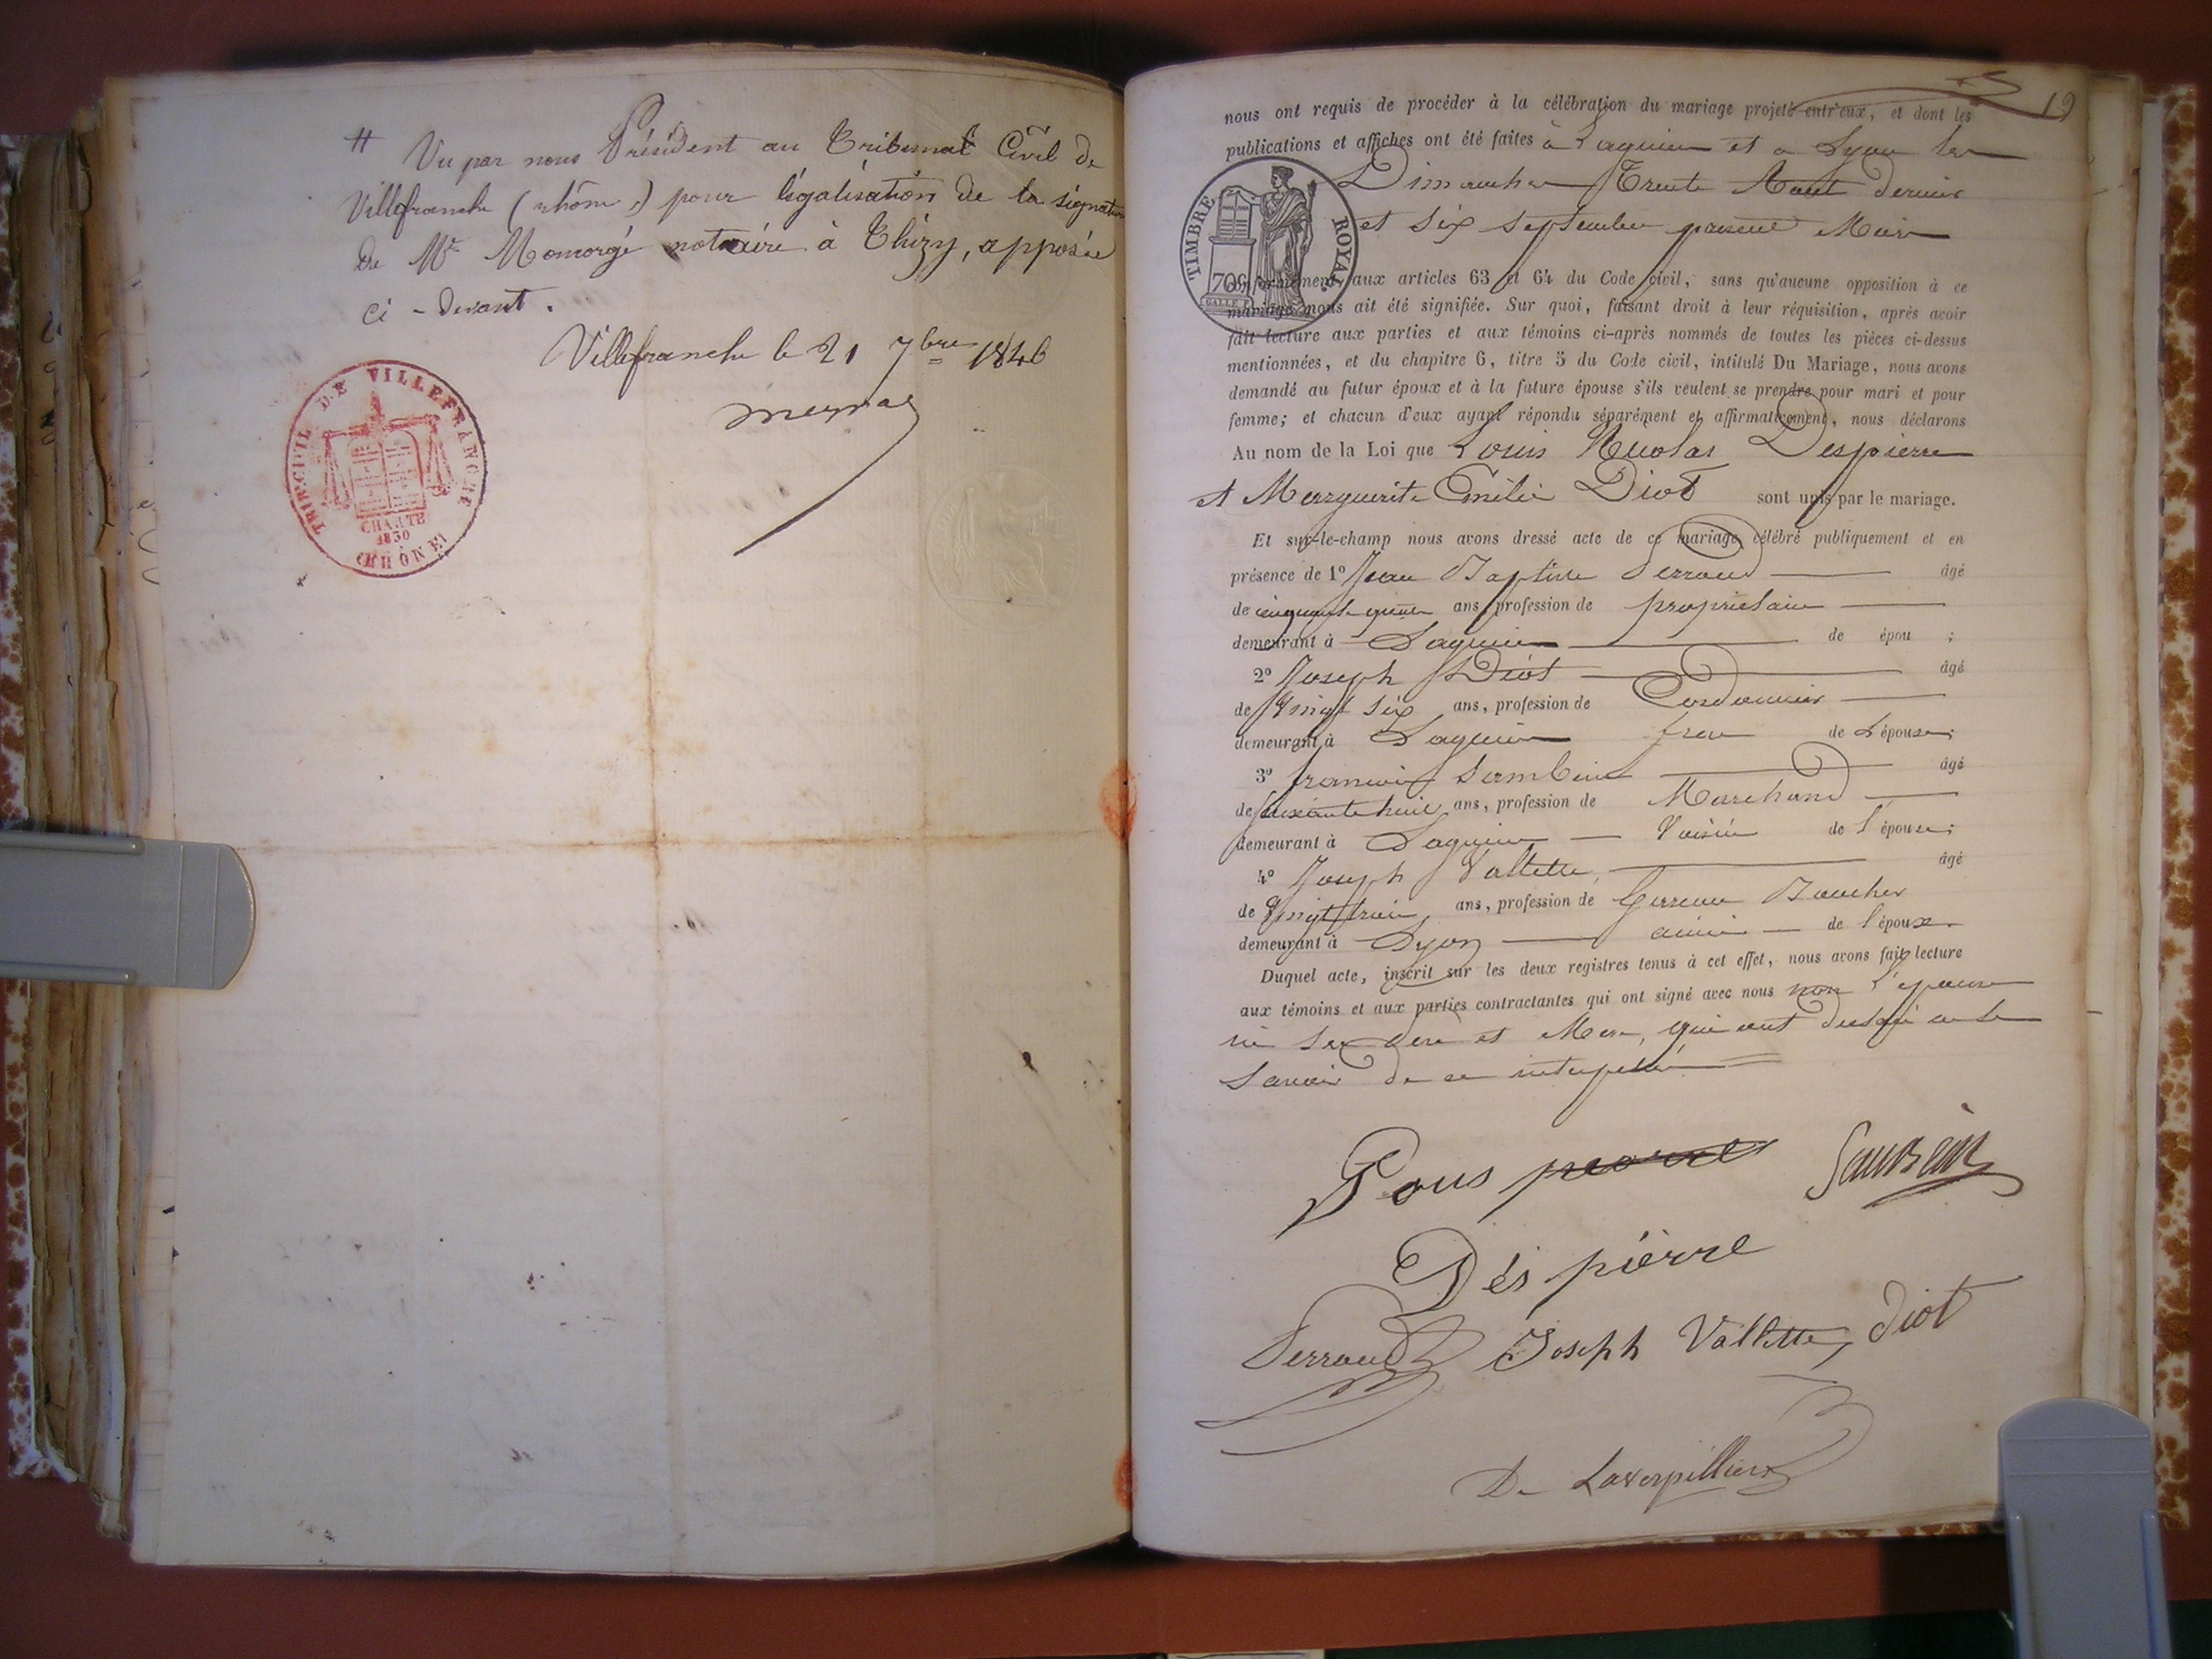 # Vu par nous Président au Tribunal Civil de
Villefranche (rhône) pour légalisation de la signature
de Me Momorgé notaire à Thizy, apposée
ci-devant.
Villefranche le 21 7bre 1846
TRIB. CIVIL DE VILLEFRANCHE
CHARTE
1830
(RHÔNE)
19
nous ont requis de procéder à la célébration du mariage projeté entr'eux, et dont les
publications et affiches ont été faites à Lagnieu et a Lyon les
Dimanches Trente Aout dernier
et six septembre présent Mois
TIMBRE ROYAL
70c
conformément aux articles 63 et 64 du Code civil, sans qu'aucune opposition à ce
mariage nous ait été signifiée. Sur quoi, faisant droit à leur réquisition, après avoir
fait lecture aux parties et aux témoins ci-après nommés de toutes les pièces ci-dessus
mentionnées, et du chapitre 6, titre 5 du Code civil, intitulé Du Mariage, nous avons
demandé au futur époux et à la future épouse s'ils veulent se prendre pour mari et pour
femme; et chacun d'eux ayant répondu séparément et affirmativement, nous déclarons
Au nom de la Loi que Louis Nicolas Despierre
et Marguerite Emélie Diot sont unis par le mariage.
Et sur-le-champ nous avons dressé acte de ce mariage célébré publiquement et en
présence de 1º Jean Baptiste Serraud âgé
de cinquante ans, profession de propriétaire
demeurant à Lagnieu de épou ;
2º Joseph Diot âgé
de Vingt six ans, profession de Cordonnier
demeurant à Lagnieu frere de L'épouse;
3º francois Sambein âgé
de soixante huit ans, profession de Marchand
demeurant à Lagnieu Voisin de l'épouse;
4º Joseph Vallette, âgé
de Vingt trois ans, profession de Garcon Boucher
demeurant à Lyon ami de l'époux.
Duquel acte, inscrit sur les deux registres tenus à cet effet, nous avons fait lecture
aux témoins et aux parties contractantes qui ont signé avec nous non l'épouse
ni ses pere et Mere, qui ont ne le
savoir de ce
Despierre
Serraud Joseph Vallette, Diot
De Laverpilliere